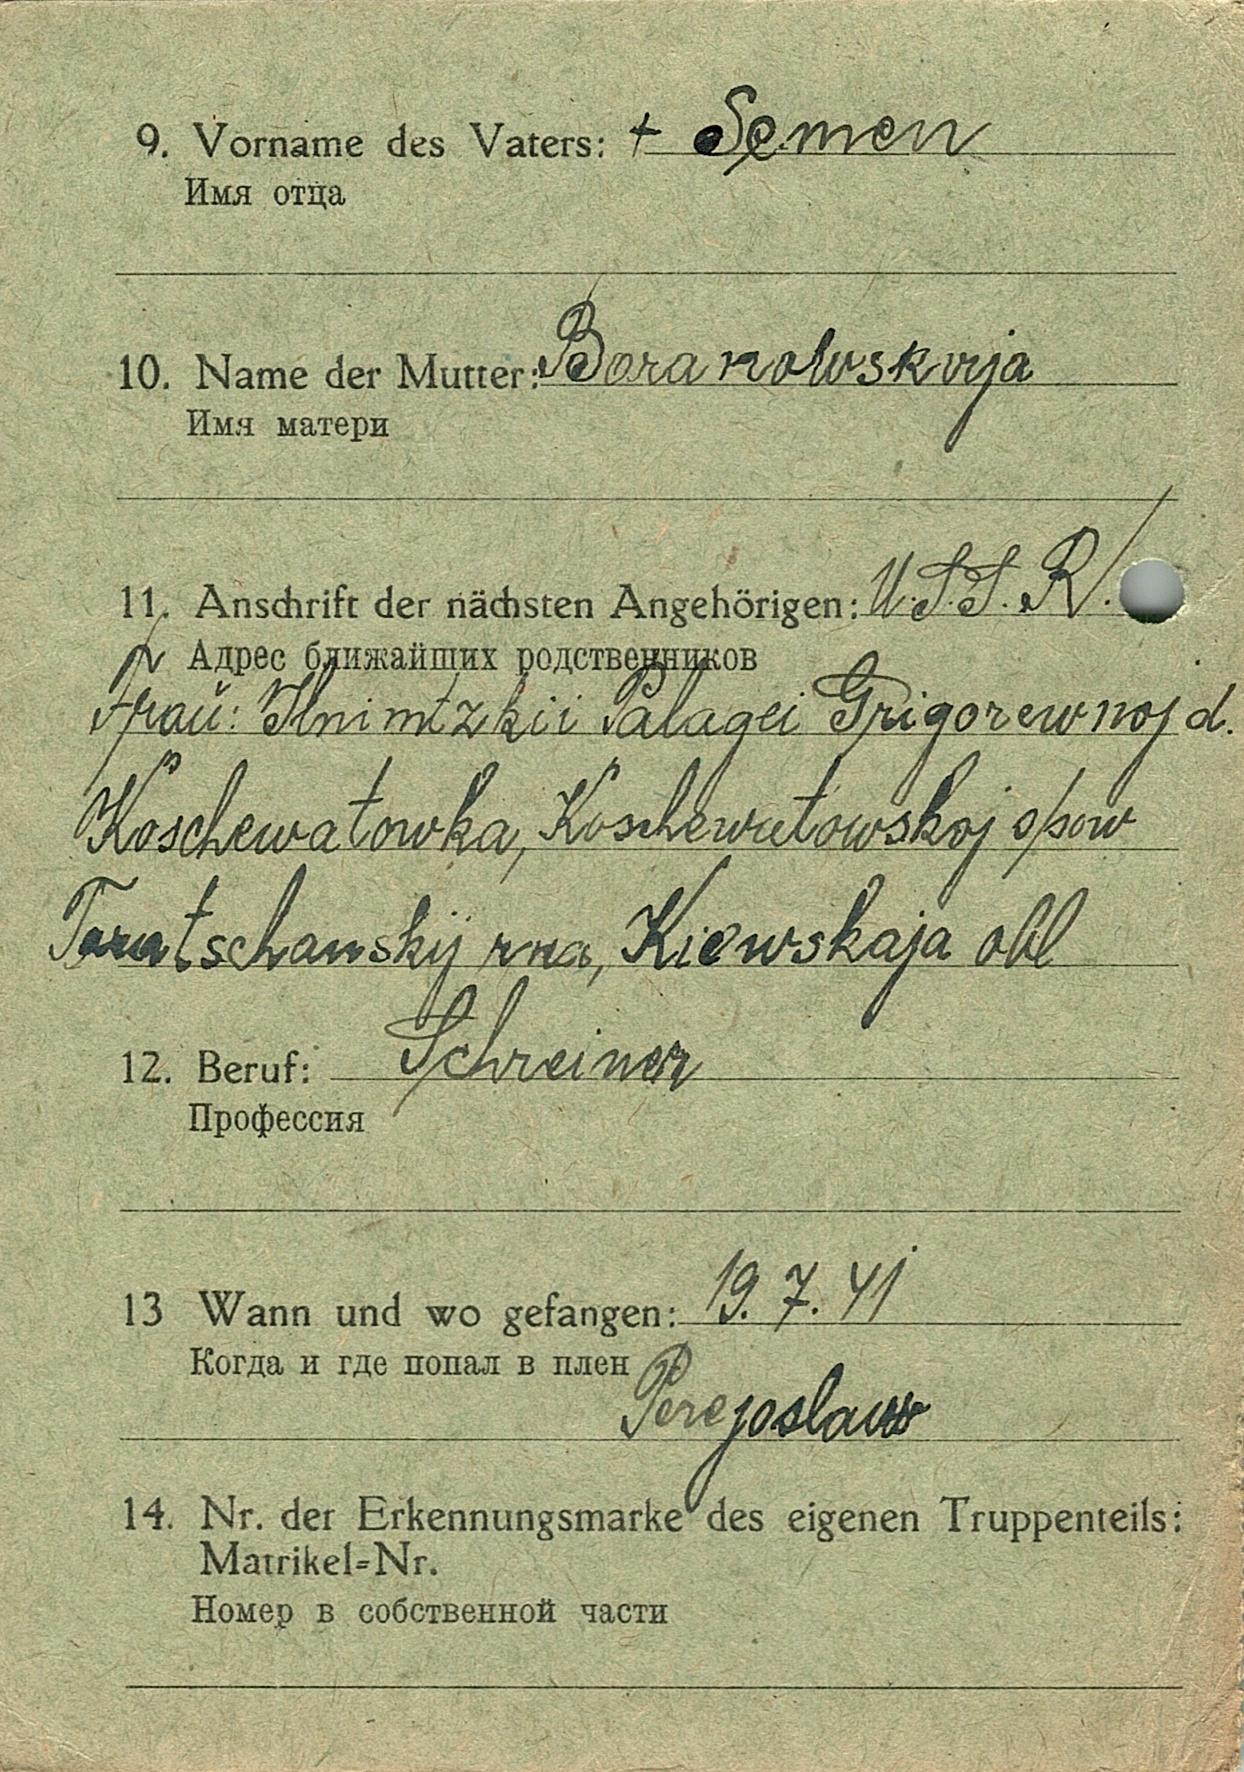 9. Vorname des Vaters: + Semen
Имя отца
10. Name der Mutter: Boranowskaja
Имя матери
11. Anschrift der nächsten Angehörigen: U.S.S.R.
Адрес ближайших родственников
Frau: Ilnimtzkii Palagei Grigorewnoj d.
Koschewatowka, Koschewatowskoj s/sow
Taratschanskij rna, Kiewskaja obl
12. Beruf: Schreiner
Профессия
13 Wann und wo gefangen: 19. 7. 41
Когда и где попал в плен
Perejoslaw
14. Nr. der Erkennungsmarke des eigenen Truppenteils:
Matrikel=Nr.
Номер в собственной части